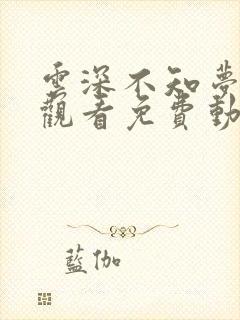 雲深不知夢
觀看免費動
藍伽